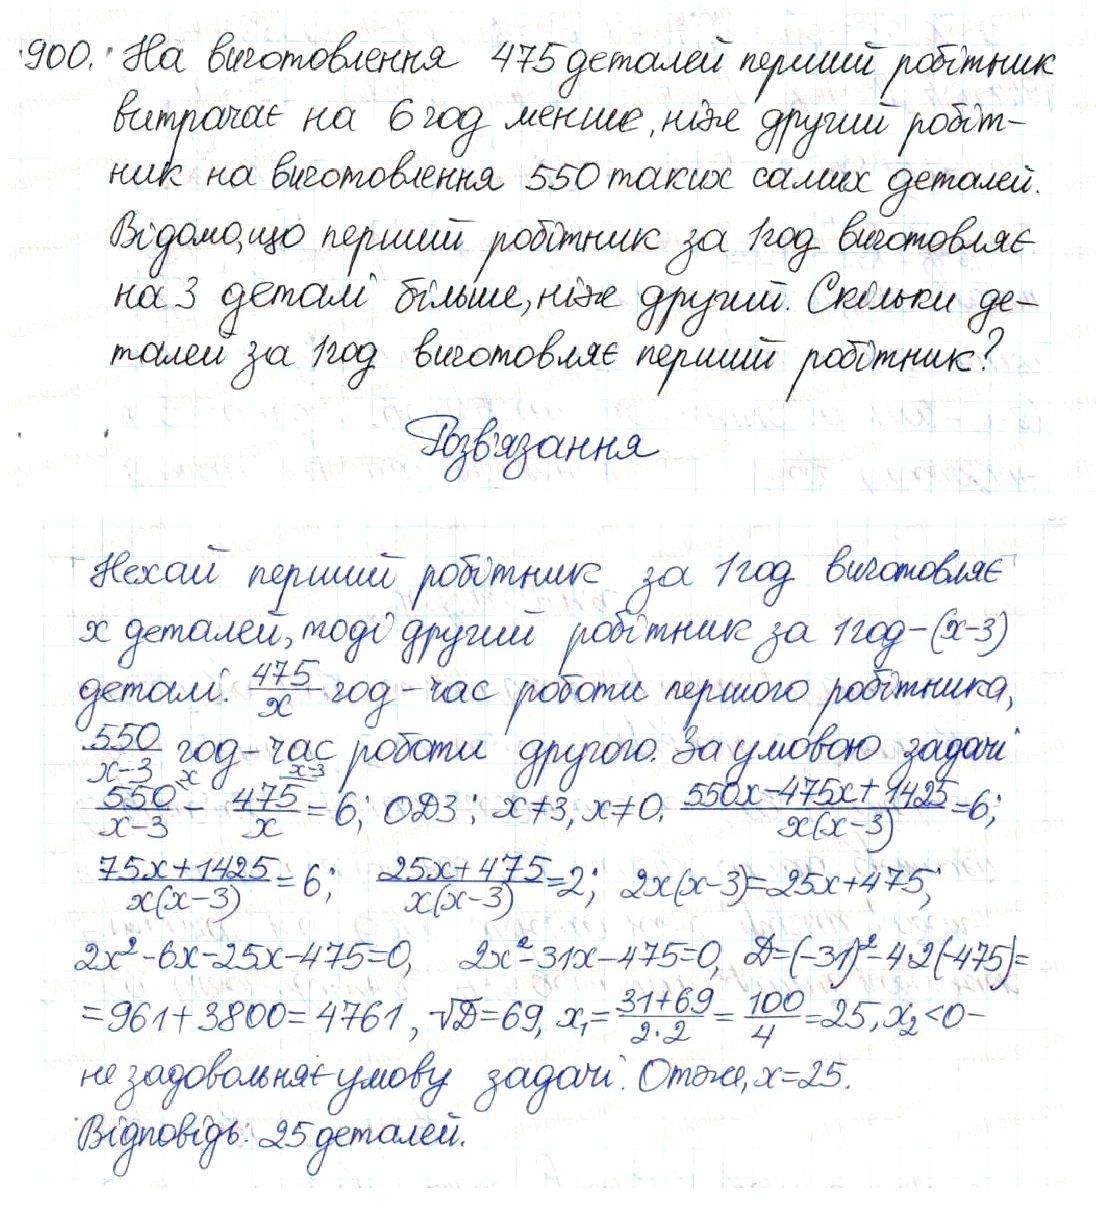 900. На виготовлення 475 деталей перший робітник
витрачає на 6 год менше, ніж другий робіт-
ник на виготовлення 550 таких самих деталей.
Відомо, що перший робітник за 1 год виготовляє
на 3 деталі більше, ніж другий. Скільки де-
талей за 1 год виготовляє перший робітник?
Розв'язання
Нехай перший робітник за 1 год виготовляє
x деталей, тоді другий робітник за 1 год - (x-3)
деталі. 475/x год - час роботи першого робітника,
550/(x-3) год - час роботи другого. За умовою задачі
550/(x-3) ^x - 475/x ^(x-3) = 6; ОДЗ: x≠3, x≠0. (550x-475x+1425)/(x(x-3)) = 6;
(75x+1425)/(x(x-3)) = 6; (25x+475)/(x(x-3)) = 2; 2x(x-3)=25x+475;
2x²-6x-25x-475=0, 2x²-31x-475=0, D=(-31)²-4·2(-475)=
=961+3800=4761, √D=69, x₁=(31+69)/(2·2)=100/4=25, x₂<0-
не задовольняє умову задачі. Отже, x=25.
Відповідь: 25 деталей.